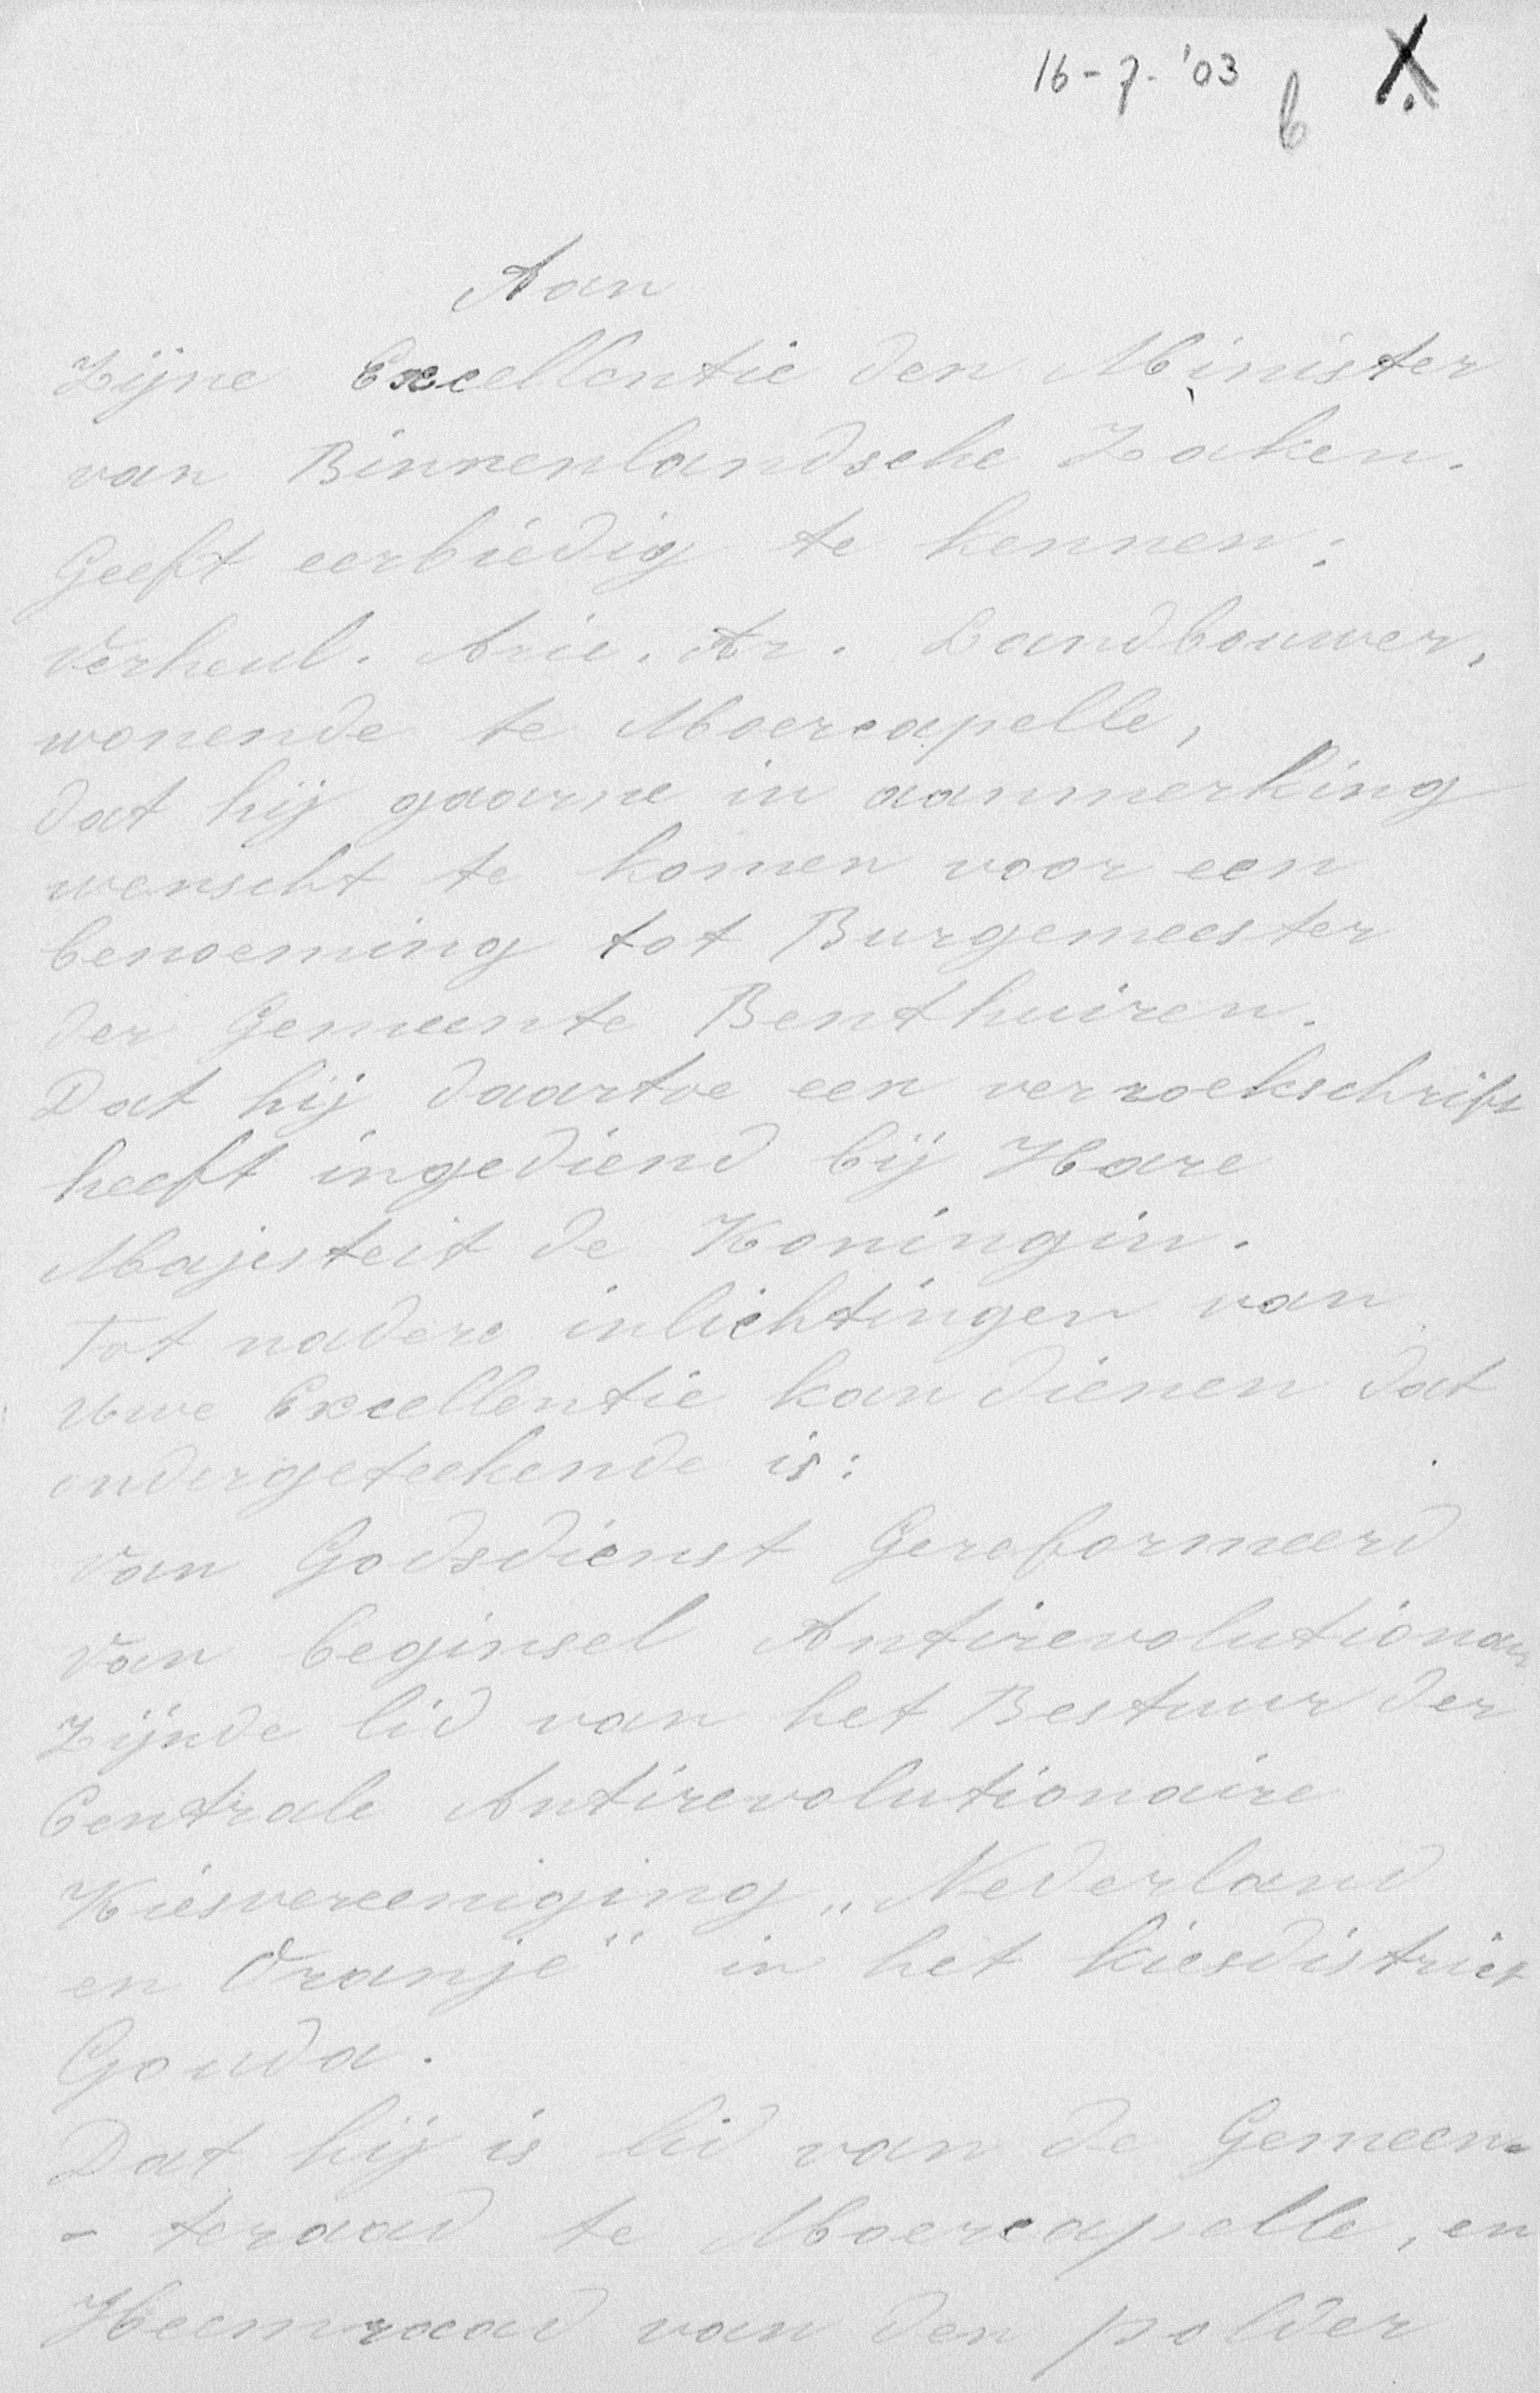 16-7-'03
b X
Aan
Zijne Excellentie den Minister
van Binnenlandsche Zaken.
Geeft eerbiedig te kennen:
Verheul. Arie. Ar. Landbouwer,
wonende te Moercapelle,
dat hij gaarne in aanmerking
wenscht te komen voor een
benoeming tot Burgemeester
der Gemeente Benthuizen.
Dat hij daartoe een verzoekschrift
heeft ingediend bij Hare
Majesteit de Koningin.
Tot nadere inlichtingen van
uwe Excellentie kan dienen dat
ondergeteekende is:
van Godsdienst Gereformeerd
van beginsel Antirevolutionair
Zijnde lid van het Bestuur der
Centrale Antirevolutionaire
Kiesvereeniging „Nederland
en Oranje" in het kiesdistrict
Gouda.
Dat hij is lid van de Gemeen-
- teraad te Moercapelle, en
Heemraad van den polder